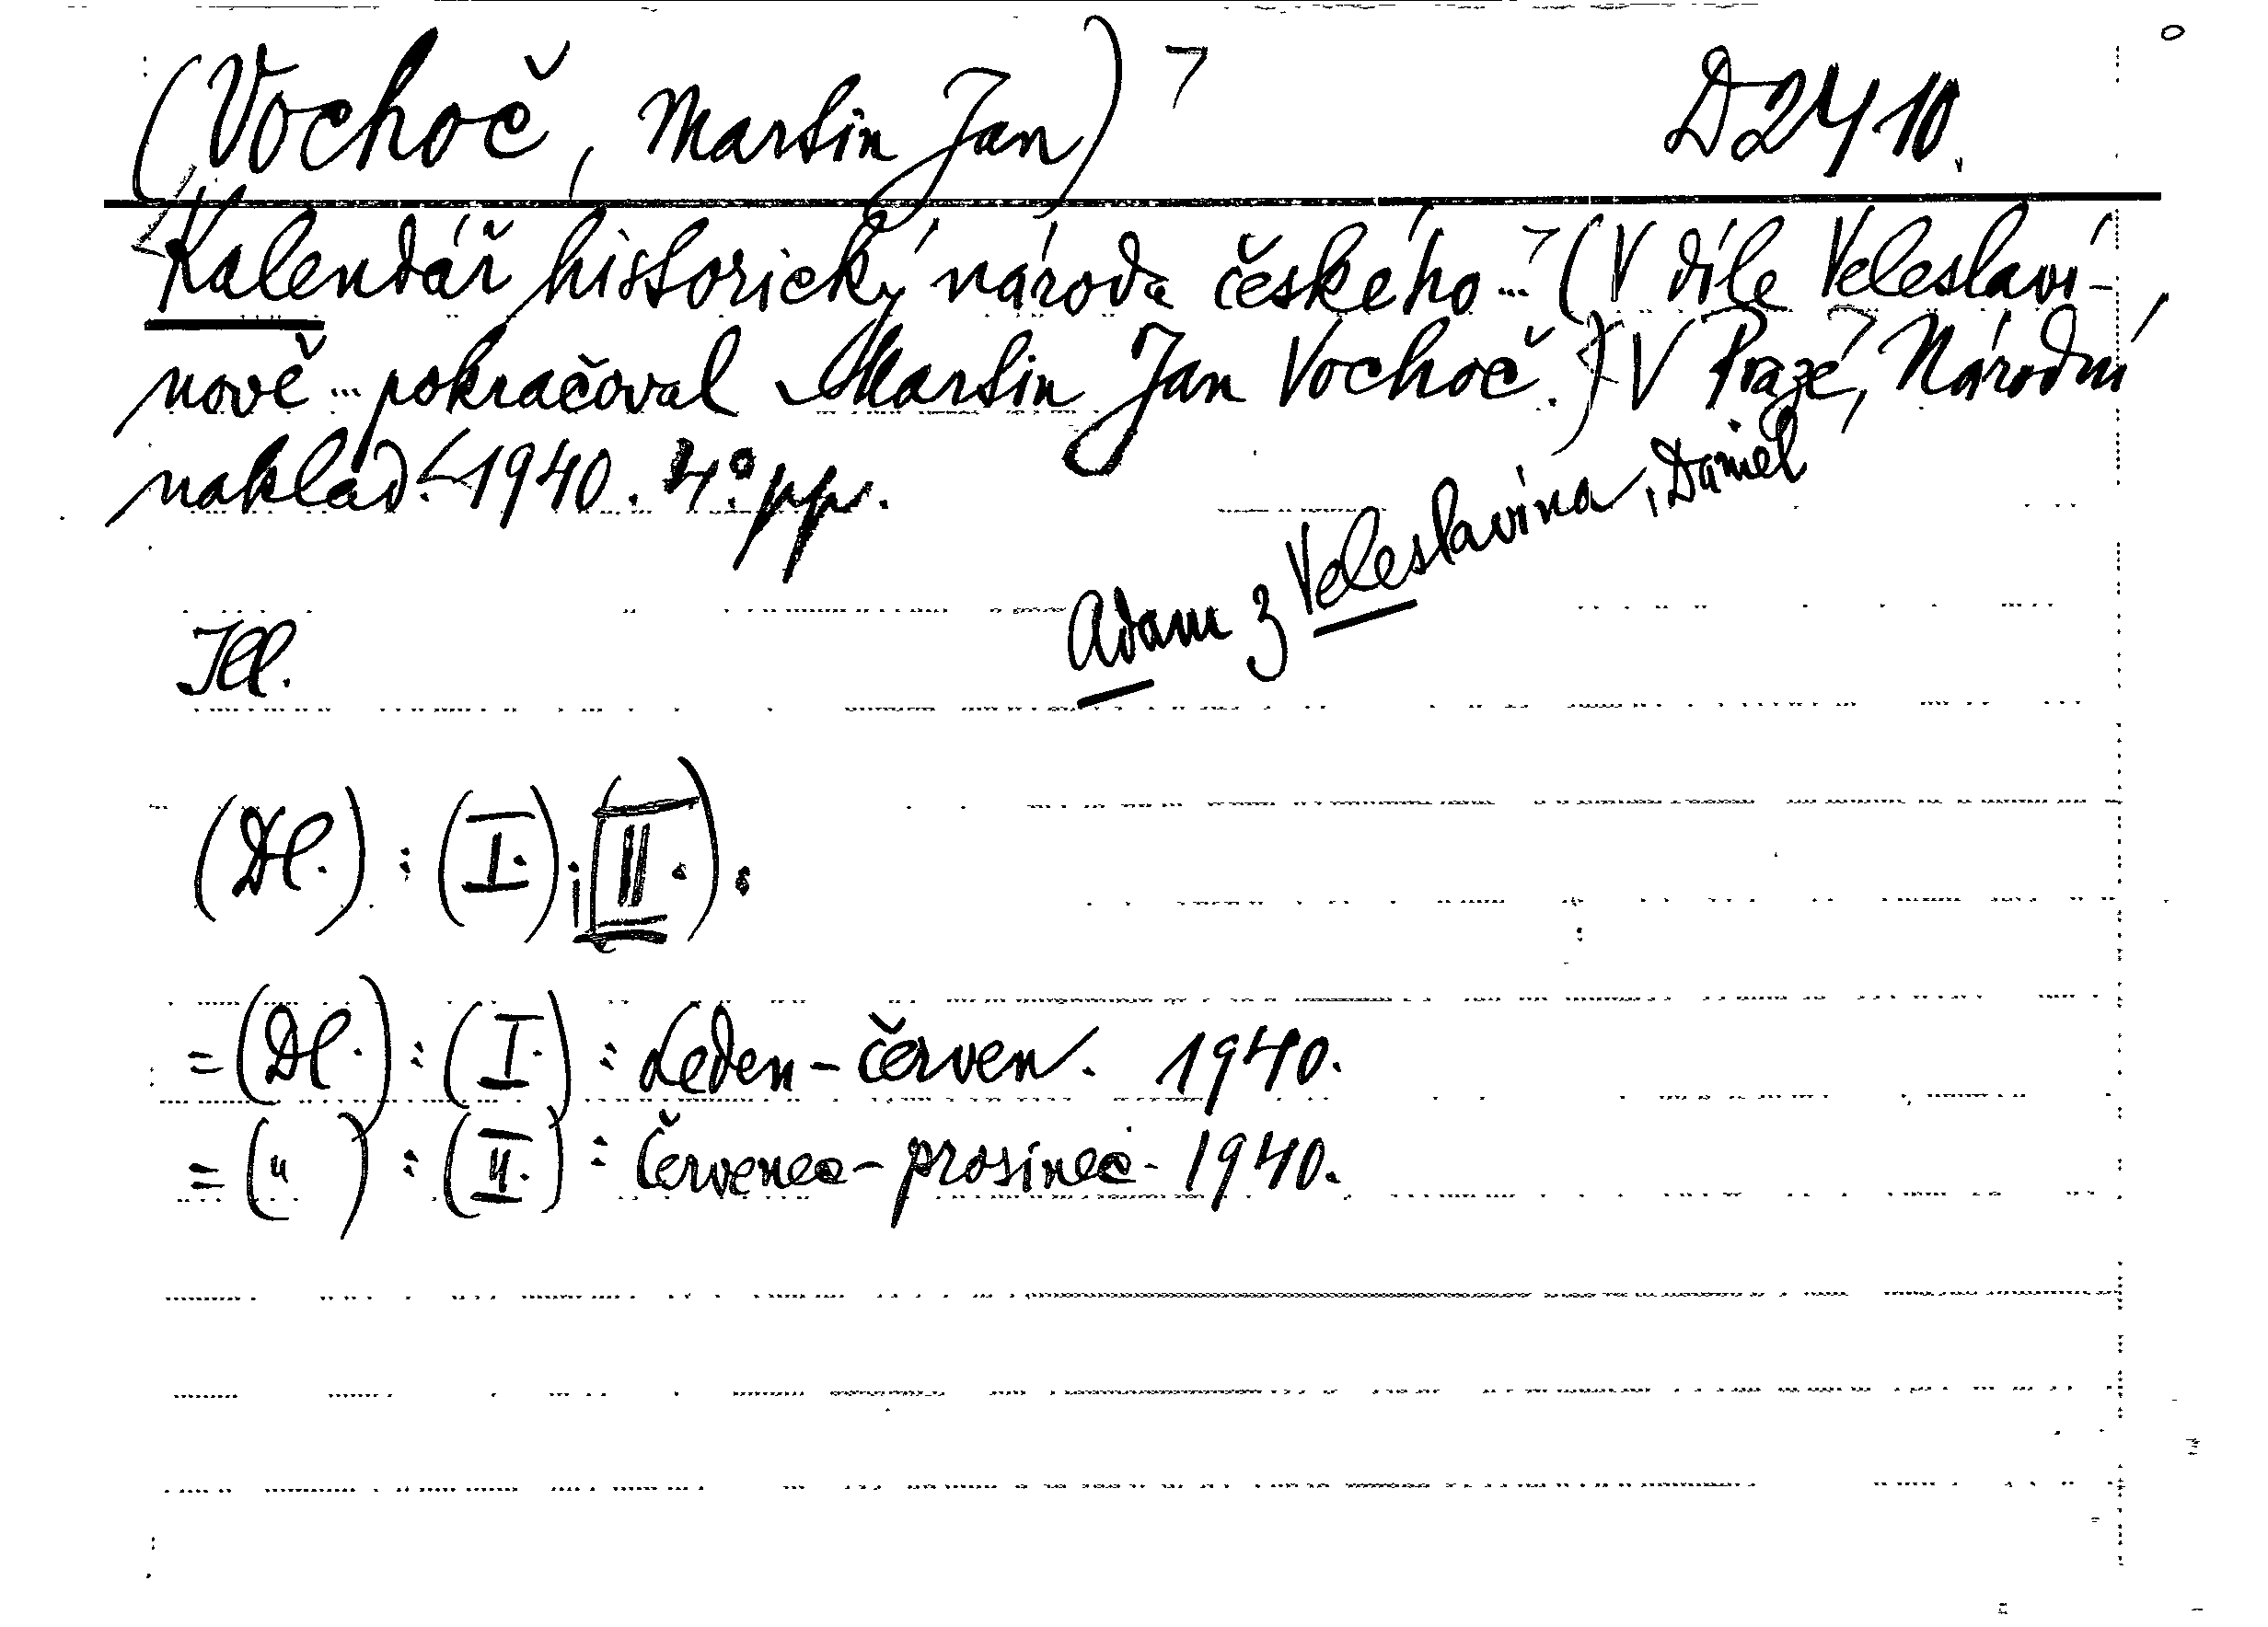 (Vochoč, Martin Jan) D2410.
Kalendář historický národa českého... (V díle Veleslaví-
nově ... pokračoval Martin Jan Vochoč.) V Praze, Národní
naklad. 1940. 4° pp.
Adam z Veleslavína, Daniel
Ill.
(Dl.) : (I.) ; (II.).
= (Dl.) : (I.) : Leden - červen. 1940.
= (" ) : (II.) : Červenec - prosinec - 1940.